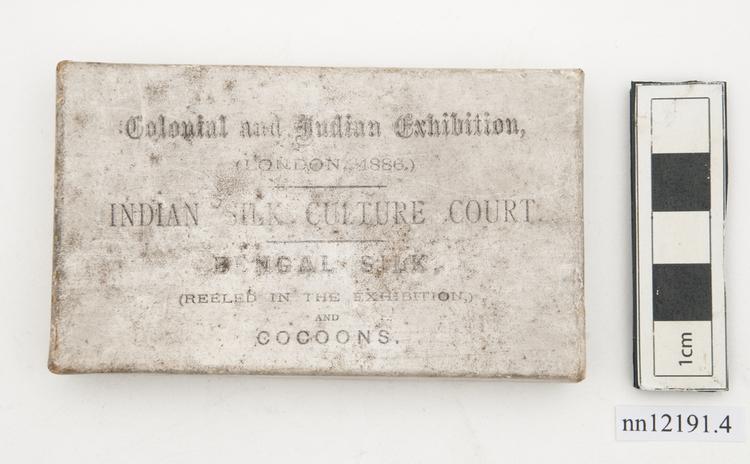 Colonial and Indian Exhibition,
(LONDON, 1886.)
INDIAN SILK CULTURE COURT.
BENGAL SILK,
(REELED IN THE EXHIBITION,)
AND
COCOONS.
1cm
nn12191.4